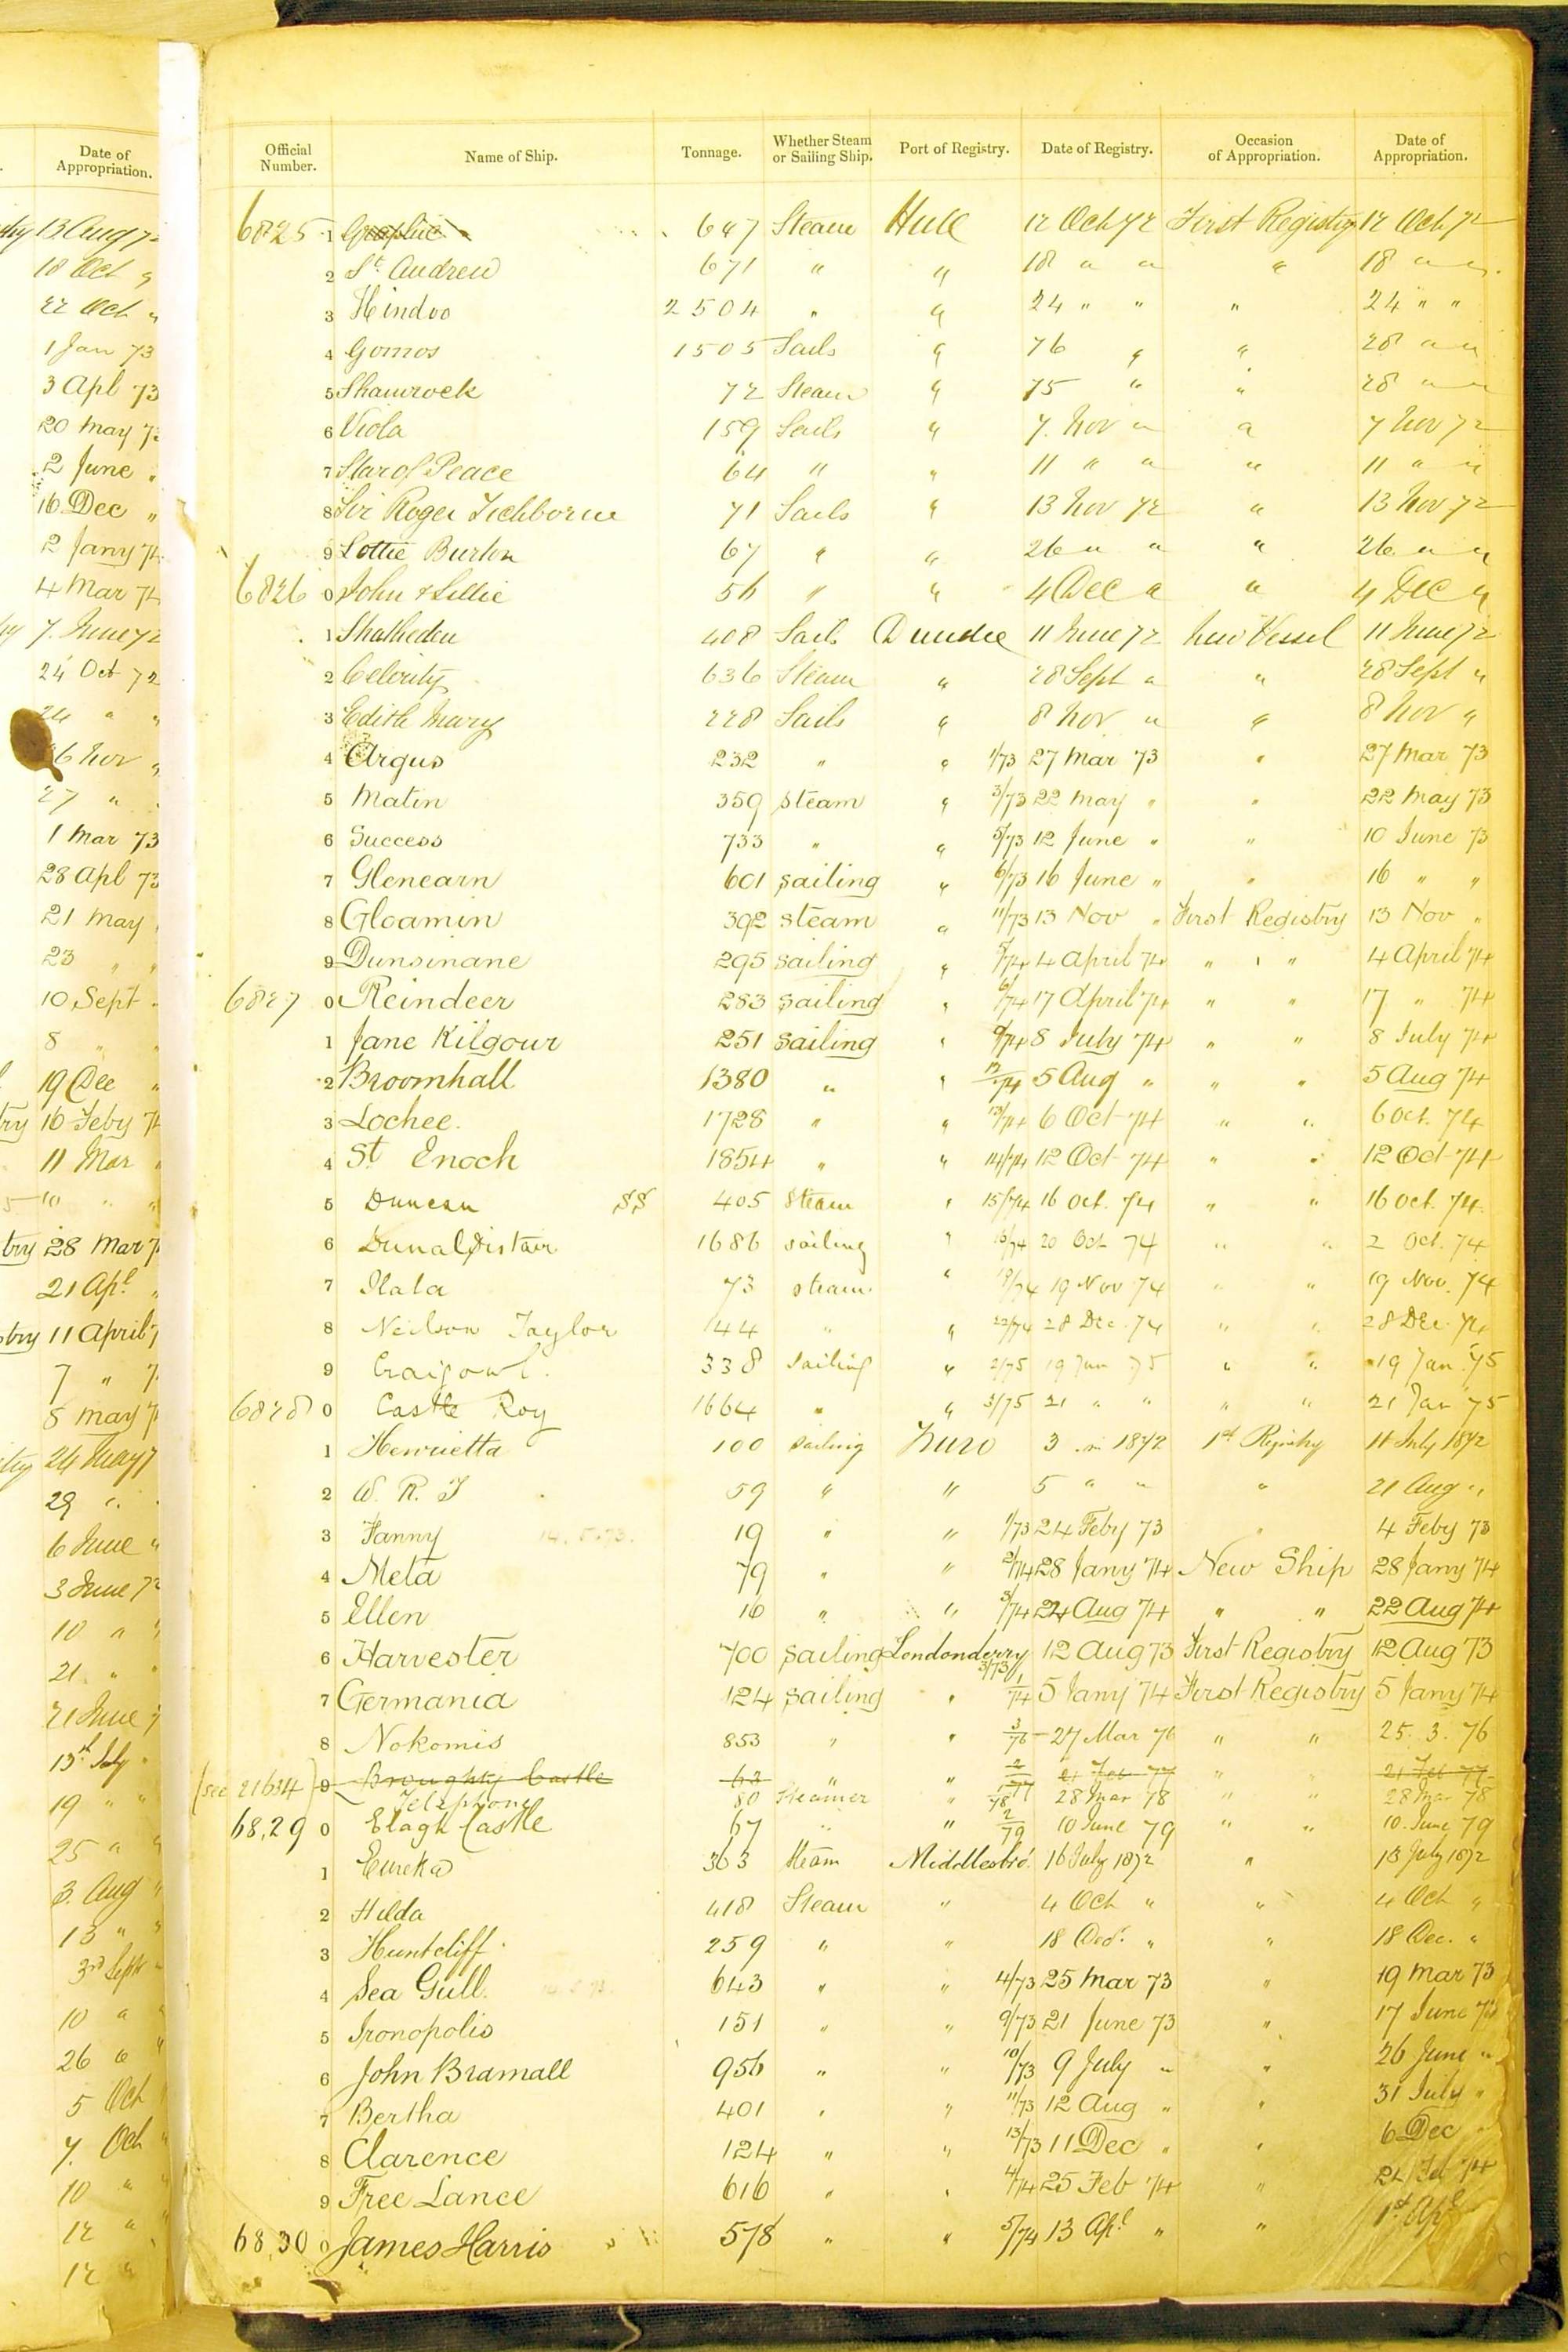 Date of Appropriation.
13 Aug 72
18 Oct "
22 Oct "
1 Jan 73
3 Apl 73
20 May 73
2 June "
16 Dec "
2 Jany 74
4 Mar 74
7. June 72
24 Oct 72
24 " "
26 Nov "
27 "
1 Mar 73
28 Apl 73
21 May
23 " "
10 Sept
8 "
19 Dec "
16 Feby 74
11 Mar
10 " "
28 Mar 7
21 Apl "
11 April 7
7 " 7
8 May 7
24 May 7
29 "
6 June "
3 June 72
10 " "
21 " "
21 June 7
13th July
19 " "
25 " "
3 Aug "
13 " "
3rd Sept
10 "
26 "
5 Oct
7. Oct
10 "
12 "
12 "
Official Number. Name of Ship. Tonnage. Whether Steam or Sailing Ship. Port of Registry. Date of Registry. Occasion of Appropriation. Date of Appropriation.
6825 1 Graphic 647 Steam Hull 12 Oct 72 First Registry 12 Oct 72
2 St. Andrew 671 " " 18 " " " 18 " "
3 Hindoo 2504 " " 24 " " " 24 " "
4 Gomos 1505 Sails " 26 " " 28 " "
5 Shamrock 72 Steam " 25 " " 28 " "
6 Viola 159 Sails " 7. Nov " " 7 Nov 72
7 Star of Peace 64 " " 11 " " " 11 " "
8 Sir Roger Tichborne 71 Sails " 13 Nov 72 " 13 Nov 72
9 Lottie Burton 67 " " 26 " " " 26 " "
6826 0 John & Lillie 56 " " 4 Dec " " 4 Dec "
1 Strathedeu 408 Sails Dundee 11 June 72 New Vessel 11 June 72
2 Celerity 636 Steam " 28 Sept " " 28 Sept "
3 Edith Mary 228 Sails " 8 Nov " " 8 Nov "
4 Argus 232 " " 1/73 27 Mar 73 " 27 Mar 73
5 Matin 359 Steam " 3/73 22 May " " 22 May 73
6 Success 733 " " 5/73 12 June " " 10 June 73
7 Glenearn 601 sailing " 6/73 16 June " " 16 " "
8 Gloamin 392 steam " 11/73 13 Nov " First Registry 13 Nov "
9 Dunsinane 295 sailing " 5/74 4 April 74 " " 4 April 74
6827 0 Reindeer 283 sailing " 6/74 17 April 74 " " 17 " 74
1 Jane Kilgour 251 sailing " 9/74 8 July 74 " " 8 July 74
2 Broomhall 1380 " " 12/74 5 Aug " " " 5 Aug 74
3 Lochee. 1728 " " 13/74 6 Oct 74 " " 6 Oct. 74
4 St. Enoch 1854 " " 14/74 12 Oct 74 " " 12 Oct 74
5 Duncan SS 405 Steam " 15/74 16 Oct. 74 " " 16 Oct. 74
6 Dunalistair 1686 sailing " 16/74 20 Oct 74 " " 2 Oct. 74
7 Ilala 73 steam " 19/74 19 Nov 74 " " 19 Nov. 74
8 Neilson Taylor 144 " " 22/74 28 Dec. 74 " " 28 Dec. 74
9 Craigowl. 338 Sailing " 2/75 19 Jan 75 " " 19 Jan 75
6828 0 Castle Roy 1664 " " 3/75 21 " " " " 21 Jan 75
1 Henrietta 100 Sailing Truro 3 1872 1st Registry 11 July 1872
2 W. R. T 59 " " 5 " " " 21 Aug "
3 Fanny 14.5.73. 19 " " 1/73 24 Feby 73 " 4 Feby 73
4 Meta 79 " " 2/74 28 Jany 74 New Ship 28 Jany 74
5 Ellen 16 " " 3/74 24 Aug 74 " " 22 Aug 74
6 Harvester 700 Sailing Londonderry 3/73 12 Aug 73 First Registry 12 Aug 73
7 Germania 124 sailing " 1/74 5 Jany 74 First Registry 5 Jany 74
8 Nokomis 853 " " 3/76 27 Mar 76 " " 25. 3. 76
(see 21634) 9 Broughty Castle 63 " " 2/77 21 Feb 77 " " 21 Feb 77
Telephone 80 Steamer " 1/78 28 Mar 78 " " 28 Mar 78
68,29 0 Elagh Castle 67 " " 2/79 10 June 79 " " 10. June 79
1 Eureka 363 Steam Middlesbro' 16 July 1872 " 18 July 1872
2 Hilda 418 Steam " 4 Oct " " 4 Oct "
3 Huntcliff 259 " " 18 Dec. " " 18 Dec. "
4 Sea Gull. 643 " " 4/73 25 Mar 73 " 19 Mar 73
5 Ironopolis 151 " " 9/73 21 June 73 " 17 June 73
6 John Bramall 956 " " 10/73 9 July " " 26 June "
7 Bertha 401 " " 11/73 12 Aug " " 31 July "
8 Clarence 124 " " 13/73 11 Dec " " 6 Dec "
9 Free Lance 616 " " 4/74 25 Feb 74 " 24 Feb 74
68,30 0 James Harris 578 " " 5/74 13 Apl " " 1st Apl